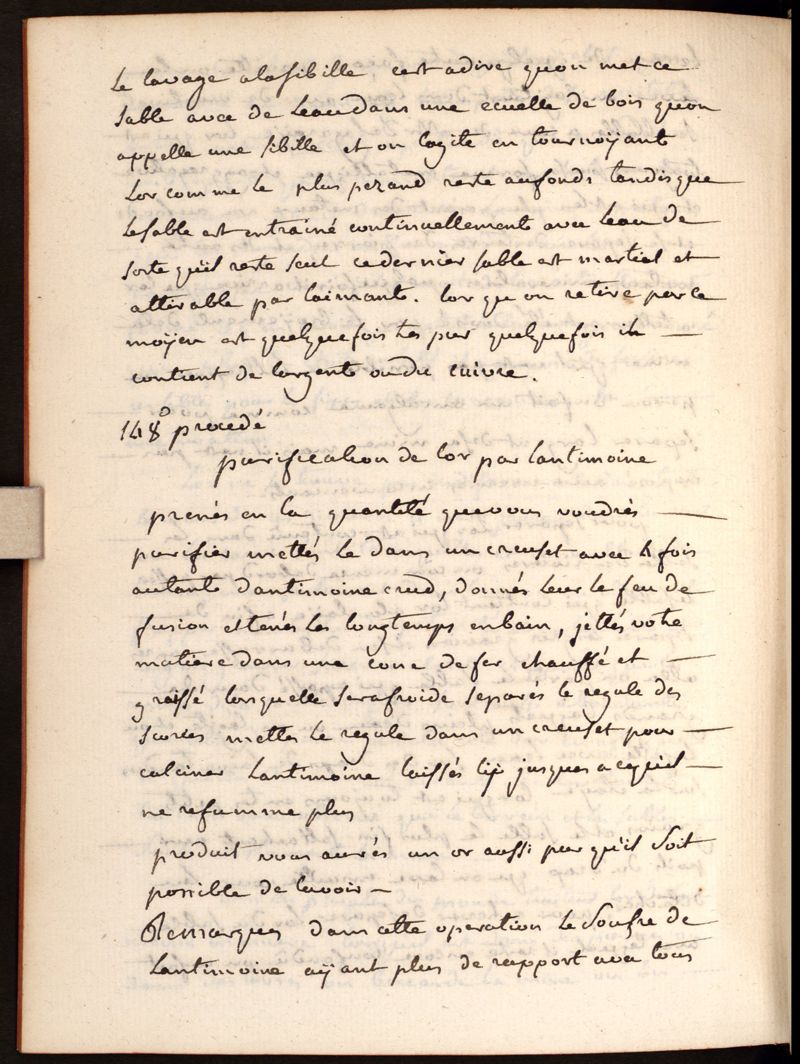 Le lavage alasibille cest adire quon met ce
sable avec de Leau dans une ecuelle de bois quon
appelle une sibille et on lagite en tournoÿant
Lor comme le plus pezand reste aufond tandisque
Lesable est entrainé continuellement avec Leau de
sorte quil reste seul cedernier sable est martiel et
attirable par laimant. lorqu on retire par ce
moÿen est quelquefois tes pur quelquefois il
contient de Largent ou du cuivre.
148° procedé
purification de lor par lantimoine
prenés en la quantité quevous voudrés
purifier mettés le dans un creuset avec 4 fois
autant dantimoine crud, donnés leur le feu de
fusion et tenés les longtemps enbain, jettés votre
matiere dans une cone de fer chauffé et
graissé lorsquelle serafroide separés le regule des
scories mettes Le regule dans un creuset pour
calciner Lantimoine laissés liÿ jusques acequil
ne refumme plus
produit vous aurés un or aussi pur qu'il soit
possible de lavoir
Remarques dans cette operation Le Soufre de
Lantimoine aÿant plus de rapport avec tous